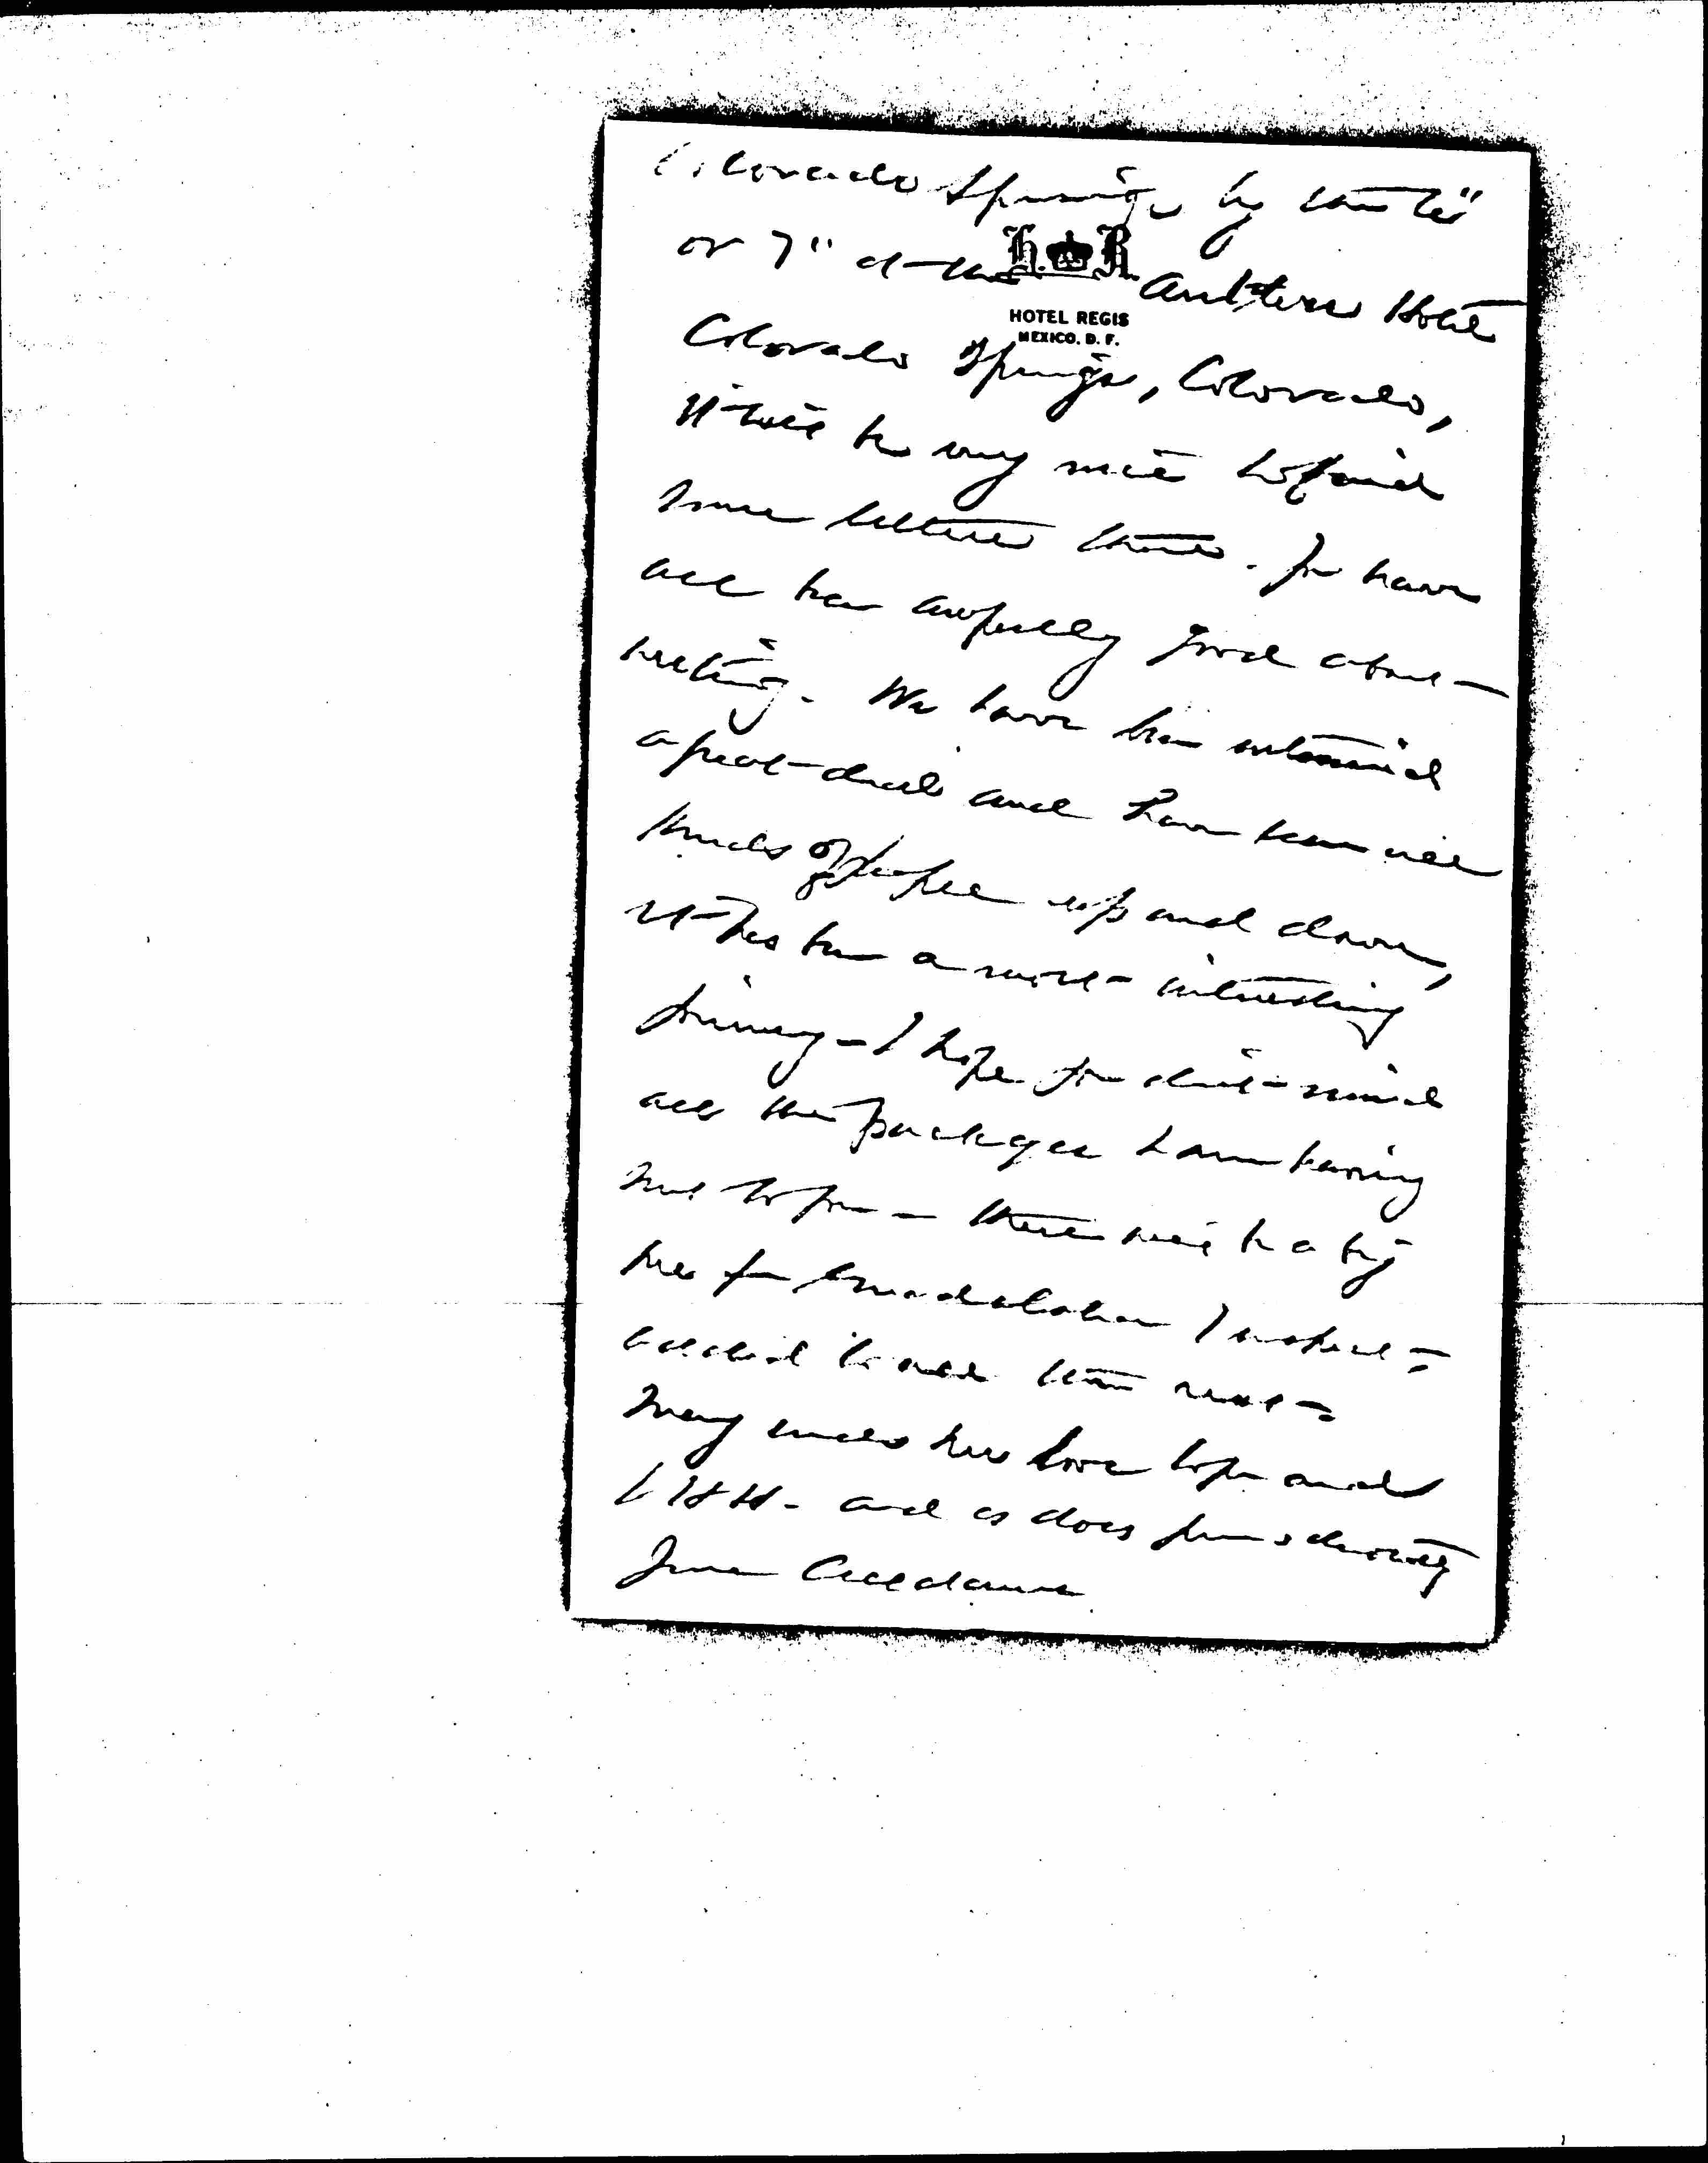 Colorado Springs by the 6"
or 7" at the Antlers Hotel
H. R.
HOTEL REGIS
MEXICO, D. F.
Colorado Springs, Colorado,
It will be very nice to find
some letters there. You have
all been awfully good about
writing. We have been entertained
a great deal and have seen all
kinds of people up and down,
It has been a most interesting
journey - I hope you don't mind
all the packages I am having
sent to you - there will be a big
one from Guadalajara I expect -
added to all the rest -
Mary sends her love to you and
and as does yours devotedly
Jane Addams